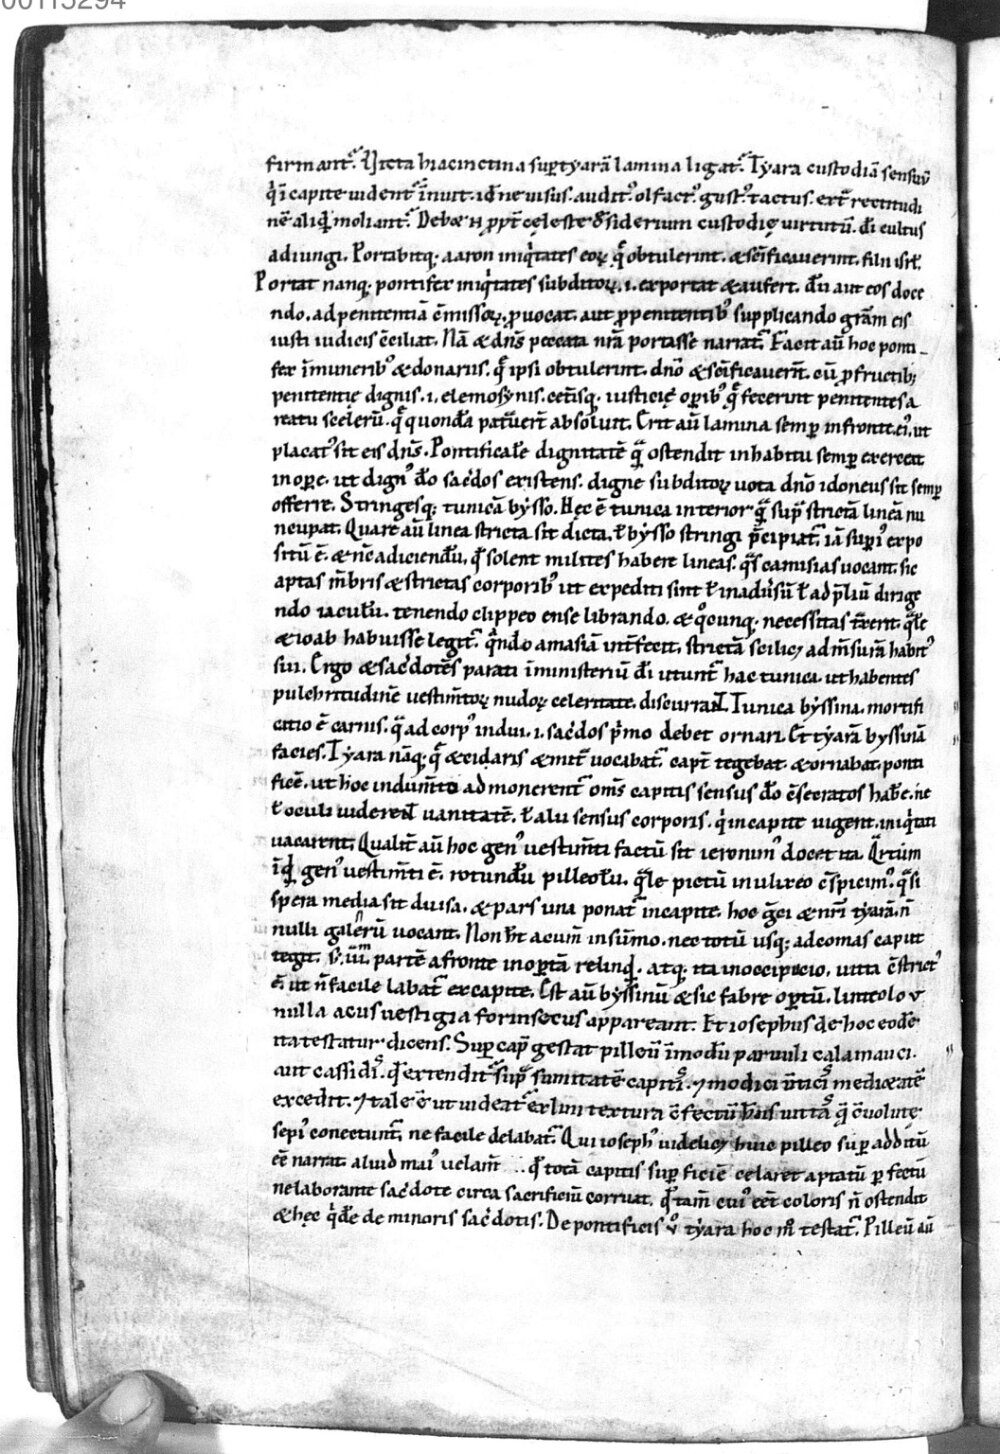 00115294
firmant᷑. Vitta hiacinctina sup tẏarā lamina ligat᷑. Tẏara custodiā sensuū
q̇ ī capite uident᷑ īnuit. id ē ne uisus. auditꝰ. olfactꝰ. gustꝰ. tactus. ext᷑ rectitudi
nē aliqͥd moliant᷑. Debꝫ n̄ ꝓpt̄ cęleste desiderium custodię uirtutū. dī cultus
adiungi. Portabitq; aaron iniqͥtates eoꝝ. q̄ obtulerint. & sc̄ificauerint. filii isrł.
Portat nanq; pontifex iniqͥtates subditoꝝ. i. exportat & aufert. dū aut eos doce
ndo. ad penitentiā cōmissoꝝ. ꝓuocat. aut ꝓ penitentibꝰ supplicando grām eis
iusti iudicis cōciliat. Nā & dn̄s peccata nr̄a portasse narrat᷑. Facit aū hoc ponti
fex ī muneribꝰ & donariis. q̄ ipsi obtulerint. dn̄o & sc̄ificauerīt. cū ꝓ fructibꝫ
penitentię dignis. i. elemosẏnis. cet̄isq; iusticię oꝑibꝰ q̄ fecerint penitentes a
reatu scelerū. q̄ quondā pat᷑uert̄ absoluit. Erit aū lamina semꝑ in fronte eiꝰ. ut
placatꝰ sit eis dn̄s. Pontificalē dignitatē q̄ ostendit in habitu semꝑ exerceat
in oꝑe. ut dignꝰ dō sac̄dos existens. digne subditoꝝ uota dn̄o idoneus sit semꝑ
offerre. Stringesq; tunicā bẏsso. Hęc ē tunica interior q̄ sup̄ strictā lineā nu
ncupat. Quare aū linea stricta sit dicta. ł bẏsso stringi p̄cipiat᷑. iā supiꝰ expo
sitū ē. & nc̄ adiciendū. qd̄ solent milites habere lineas. q̄s camisias uocant. sic
aptas m̄bris & strictas corporibꝰ ut expediti sint ł in adūsū ł ad p̄liū dirige
ndo iaculū. tenendo clippeo ense librando. & qͦcunq; necessitas t᷑xerit. qłe
& ioab habuisse legit᷑. qͣndo amasiā int̄fecit. strictā scilicꝫ ad m̄surā habitꝰ
sui. Ergo & sac̄dotes parati ī ministeriū dī utunt᷑ hac tunica. ut habentes
pulchritudinē uestim̄toꝝ nudoꝝ celeritate discurrant. Tunica bẏssina. mortifi
catio ē carnis. q̄ ad corpꝰ indui. i. sac̄dos pͥmo debet ornari. Et tẏarā bẏssinā
facies. Tẏara nāq; q̄ & cidaris & mit᷑ uocabat᷑. capt̄ tegebat. & ornabat. ponti
ficē. ut hoc indum̄to admonerent᷑ oms̄ capitis sensus dō cōsecratos habē. ne
ł oculi uiderent uanitatē. ł alii sensus corporis. qͥ in capite uigent. iniqͥtati
uacarent. Qualit̄ aū hoc genꝰ uestim̄ti factū sit ieronimꝰ docet ita. Qͣrtum
inqͥd genꝰ uestim̄ti ē. rotundū pilleolū. qͣle pictū in ulixeo cōspicimꝰ. qͣsi
spera media sit diuisa. & pars una ponat᷑ in capite. hoc gͣci & nr̄i tẏarā. n̄
nulli galerū uocant. Non hт̄ acum̄ in sūmo. nec totū usq; ad comas caput
tegit. s; iii.am partē a fronte inoꝑtā relinqͥd. atq; ita in occipicio. uitta cōstrictꝰ
ē. ut n̄ facile labat᷑ ex capite. Est aū bẏssinū & sic fabre oꝑtū. linteolo ut
nulla acus uestigia forinsecus appareant. Et iosephus de hoc eodē
ita testatur dicens. Sup cap̄ gestat pilleū ī modū paruuli calamauci.
aut cassidis. qd̄ extendit᷑ sup̄ sūmitatē capitis. ⁊ modicū ūticis medi&atē
excedit. ⁊ tale ē ut uideat᷑ ex lini textura cōfectū huis uittas q̄ cōuolutę
sepiꝰ conectunt᷑. ne facile delabat᷑. Qui iosephꝰ uidelicꝫ huic pilleo suꝑ additū
eē narrat. aliud maiꝰ uelam̄ .. qd̄ totā capitis suꝑficiē celaret aptatū ꝑfectū
ne laborante sac̄dote circa sacrificiū corruat. qd̄ tam̄ cuiꝰ eēt coloris n̄ ostendit
& hęc qͥdē de minoris sac̄dotis. De pontificis uͦ tẏara hoc mͦ testat᷑. Pilleū aū